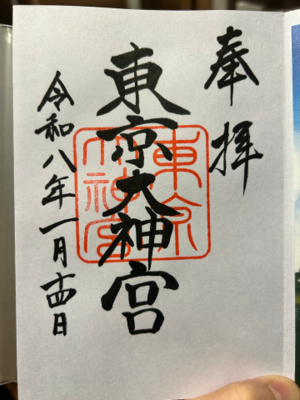 奉拝
東京大神宮
東京大神宮
令和八年一月十四日